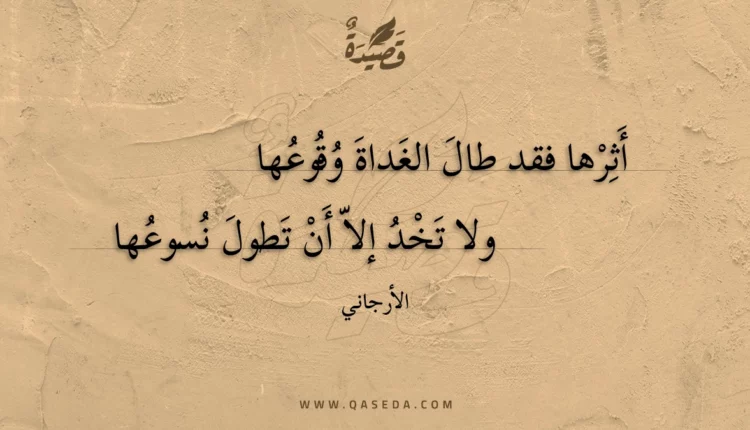 قَصِيدَةٌ
أَثِرْها فقد طالَ الغَداةَ وُقُوعُها
ولا تَخْدُ إلاّ أَنْ تَطولَ نُسوعُها
الأرجاني
WWW.QASEDA.COM